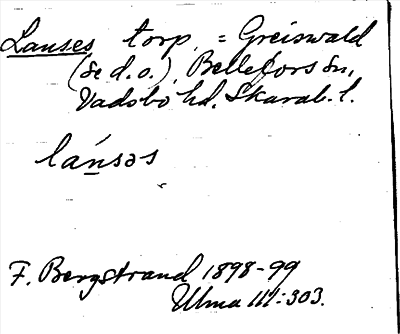 Lanses torp, = Greiswald
(se d.o.), Bellefors sn,
Vadsbo hd, Skarab. l.
lańsəs
F. Bergstrand 1898-99
Ulma 111:303.